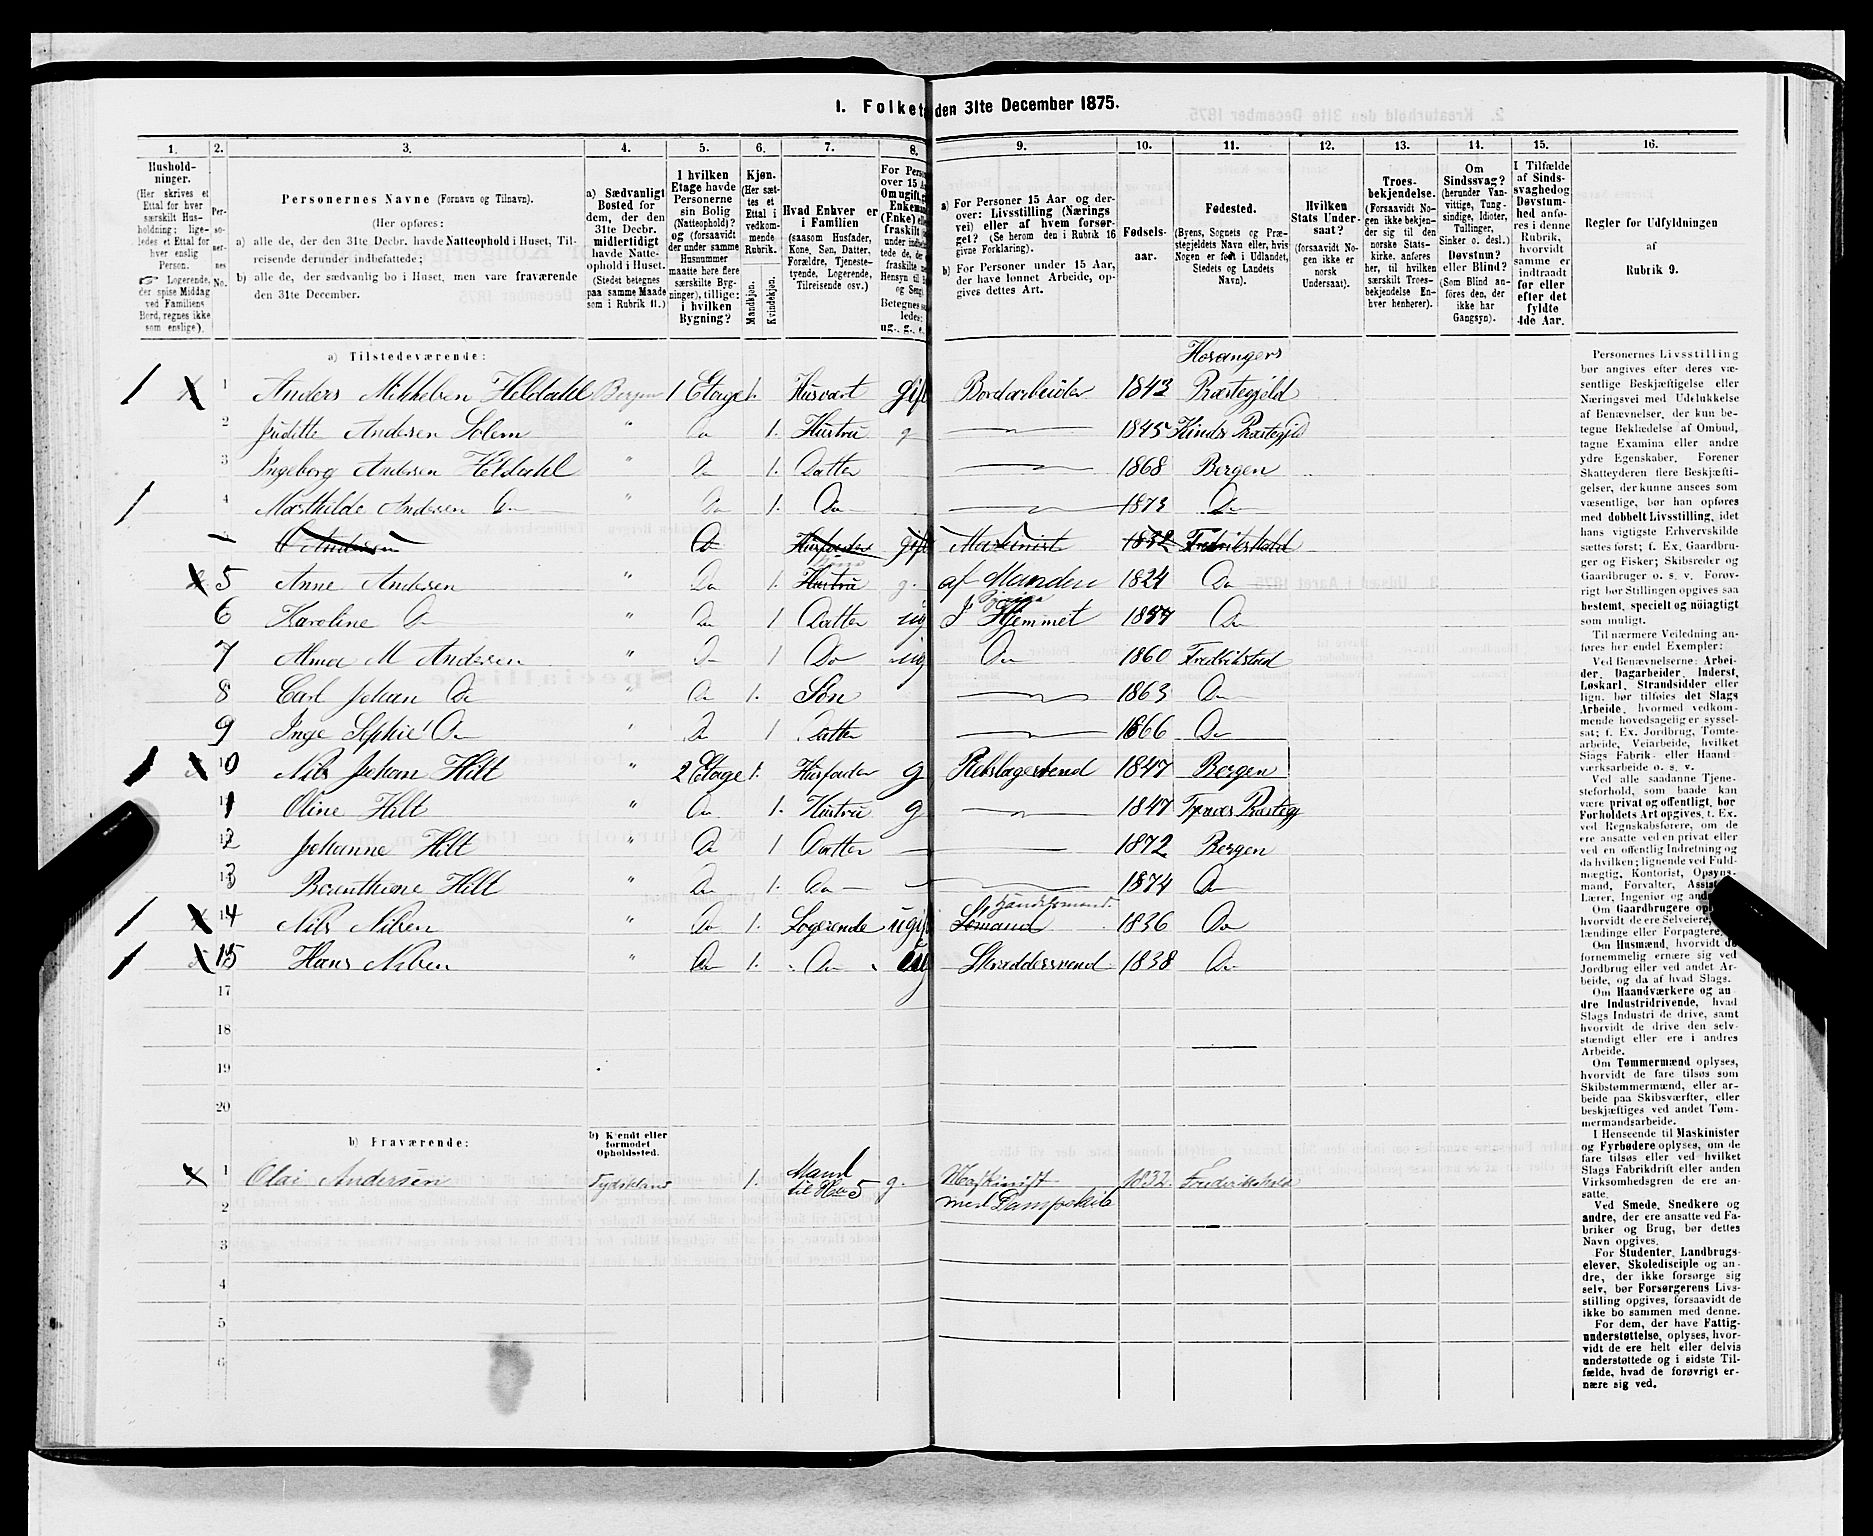 1. Folket den 31te December 1875.
1. 2. 3. 4. 5. 6. 7. 8. 9. 10. 11. 12. 13. 14. 15. 16.
Hushold-
ninger.
(Her skrives et
Ettal for hver
særskilt Hus-
holdning; lige-
ledes et Ettal for
hver enslig
Person.
Logerende,
der spise Middag
ved Familiens
Bord, regnes ikke
som enslige).
Per-
so-
ner-
nes
No.
Personernes Navne (Fornavn og Tilnavn).
(Her opføres:
a) alle de, der den 31te Decbr. havde Natteophold i Huset, Til-
reisende derunder indbefattede;
b) alle de, der sædvanlig bo i Huset, men vare fraværende
den 31te December.
a) Sædvanligt
Bosted for
dem, der den
31te Decbr.
midlertidigt
havde Natte-
ophold i Huset.
(Stedet betegnes
paa samme Maade
som i Rubrik 11.)
I hvilken
Etage havde
Personerne
sin Bolig
(Natteophold)?
og (forsaavidt
der under samme
Husnummer
maatte høre flere
særskilte Byg-
ninger), tillige:
i hvilken
Bygning?
Kjøn.
(Her sæt-
tes et
Ettal i
vedkom-
mende
Rubrik.
Mandkjøn.
Kvindekjøn.
Hvad Enhver er
i Familien
(saasom Husfader,
Kone, Søn, Datter,
Forældre, Tjeneste-
tyende, Logerende,
Tilreisende osv.)
For Person
over 15 Aa
Om ugift, g
Enkeman
(Enke) elle
fraskilt
under indbe
tede de, der
fraskilte
Hensyn til
og Seng
Betegnes sa
ledes:
ug., g., e.
a) For Personer 15 Aar og der-
over: Livsstilling (Nærings
vei) eller af hvem forsør-
get? (Se herom den i Rubrik 16
givne Forklaring).
b) For Personer under 15 Aar,
der have lønnet Arbeide, op-
gives dettes Art.
Fødsels-
aar.
Fødested.
(Byens, Sognets og Præ-
stegjeldets Navn eller, hvis
Nogen er født i Udlandet,
Stedets og Landets
Navn).
Hvilken
Stats Under-
saat?
(forsaavidt No-
gen ikke er
norsk
Undersaat).
Troes-
bekjendelse.
(Forsaavidt No-
gen ikke bekjen-
der sig til den
norske Stats-
kirke, anføres
her, til hvilken
særskilt Troes-
bekjendelse En-
hver henhører).
Om
Sindssvag?
(herunder Van-
vittige, Tung-
sindige, Idioter,
Tullinger,
Sinker o. desl.)
Døvstum?
eller Blind?
(Som Blind an-
føres den, der
ikke har
Gangsyn).
I Tilfælde
af Sinds-
svaghed og
Døvstum-
hed anfø-
res i denne
Rubrik,
hvorvidt
samme er
indtraadt
før eller
efter det
fyldte
4de Aar.
Regler for Udfyldningen
af
Rubrik 9.
a) Tilstedeværende:
Hosangers
1 Anders Mikkelsen Heldahl Bergen 1 Etage 1. Husvært Gift Bordarbeider 1843 Præstegjeld
2 Juditte Andersen Solem " Do 1. Hustru g 1845 Kinds Præstegjeld
3 Ingeborg Andersen Heldahl " Do 1. Datter 1868 Bergen
4 Marthilde Andersen Do " Do 1. Do 1873 Do
O Andersen Do Husfader gift Maskinist 1832 Fredrikshald
5 Anne Andersen " Do 1. Hustru g. af Manden 1824 Do
6 Karoline Do " Do 1 Datter ug I Hjemmet 1857 Do
7 Alma M Andersen " Do 1 Do ug Do 1860 Fredrikstad
8 Carl Johan Do " Do 1. Søn 1863 Do
9 Inge Sophie Do " Do 1 Datter 1866 Do
10 Nils Johan Hilt " 2 Etage 1. Husfader g Rebslagersvend 1847 Bergen
11 Oline Hilt " Do 1. Hustru g 1847
12 Johanne Hilt " Do 1 Datter 1872 Bergen
13 Berenthine Hilt " Do 1. Do 1874 Do
14 Nils Nilsen " Do 1. Logerende ugift Sømand 1836 Do
15 Hans Nilsen " Do 1. Do ug Skræddersvend 1838 Do
17
18
19
20
b) Fraværende:
b) Kjendt eller
formodet
Opholdssted.
1 Olai Andersen Tydskland 1. Mand
til No 5 g. Maskinist
med Dampskib 1832. Frederikshald
2
3
4
5
6
Personernes Livsstilling
bør angives efter deres væ-
sentlige Beskjæftigelse eller
Næringsvei med Udelukkelse
af Benævnelser, der kun be-
tegne Beklædelse af Ombud,
tagne Examina eller andre
ydre Egenskaber. Forener
Skatteyderen flere Beskjæfti-
gelser, der kunne ansees som
væsentlige, bør han opføres
med dobbelt Livsstilling, idet
hans vigtigste Erhvervskilde
sættes først; f. Ex. Gaardbru-
ger og Fisker; Skibsreder og
Gaardbruger o. s. v. Forøv-
rigt bør Stillingen opgives saa
bestemt, specielt og nøiagtigt
som muligt.
Til nærmere Veiledning an-
føres her endel Exempler:
Ved Benævnelserne: Arbei-
der, Dagarbeider, Inderst,
Løskarl, Strandsidder eller
lign. bør tilføies det Slags
Arbeide, hvormed vedkom-
mende hovedsagelig er syssel-
sat; f. Ex. Jordbrug, Tomte-
arbeide, Veiarbeide, hvilket
Slags Fabrik- eller Haand-
værksarbeide o. s. v.
Ved alle saadanne Tjene-
steforhold, som baade kan
være privat og offentligt, bør
Forholdets Art opgives, t. Ex.
ved Regnskabsførere, om de
ere ansatte ved en privat eller
ved en offentlig Indretning og
da hvilken; lignende ved Fuld-
mægtig, Kontorist, Opsyns-
mand, Forvalter, Assis
Lærer, Ingeniør og and
Om Gaardbrugere op
hvorvidt de ere Selveiere,
lændinge eller Forpagtere.
Om Husmænd, hvorvidt de
fornemmelig ernære sig ved
Jordbrug eller ved andet Ar-
beide, og da af hvad Slags.
Om Haandværkere og an
dre Industridrivende, hvad
Slags Industri de drive, samt
hvorvidt de drive den selv-
stændigt eller ere i andres
Arbeide.
Om Tømmermænd oplyses,
hvorvidt de fare tilsøs som
Skibstømmermænd, eller ar-
beide paa Skibsværfter, eller
beskjæftiges ved andet Tøm-
mermandsarbeide.
I Henseende til Maskinister
og Fyrbødere oplyses, om de
fare tilsøs eller ved hvilket
Slags Fabrikdrift eller anden
Virksomhedsgren de ere an-
satte.
Ved Smede, Snedkere og
andre, der ere ansatte ved Fa-
briker og Brug, bør dettes
Navn opgives.
For Studenter, Landbrugs-
elever, Skoledisciple og an-
dre, der ikke forsørge sig
selv, bør Forsørgerens Livs-
stilling opgives, forsaavidt de
ikke bo sammen med denne.
For dem, der have Fattig-
understøttelse, oplyses, hvor-
vidt de ere helt eller delvis
understøttede og i sidste Til-
fælde, hvad de forøvrigt er-
nære sig ved.